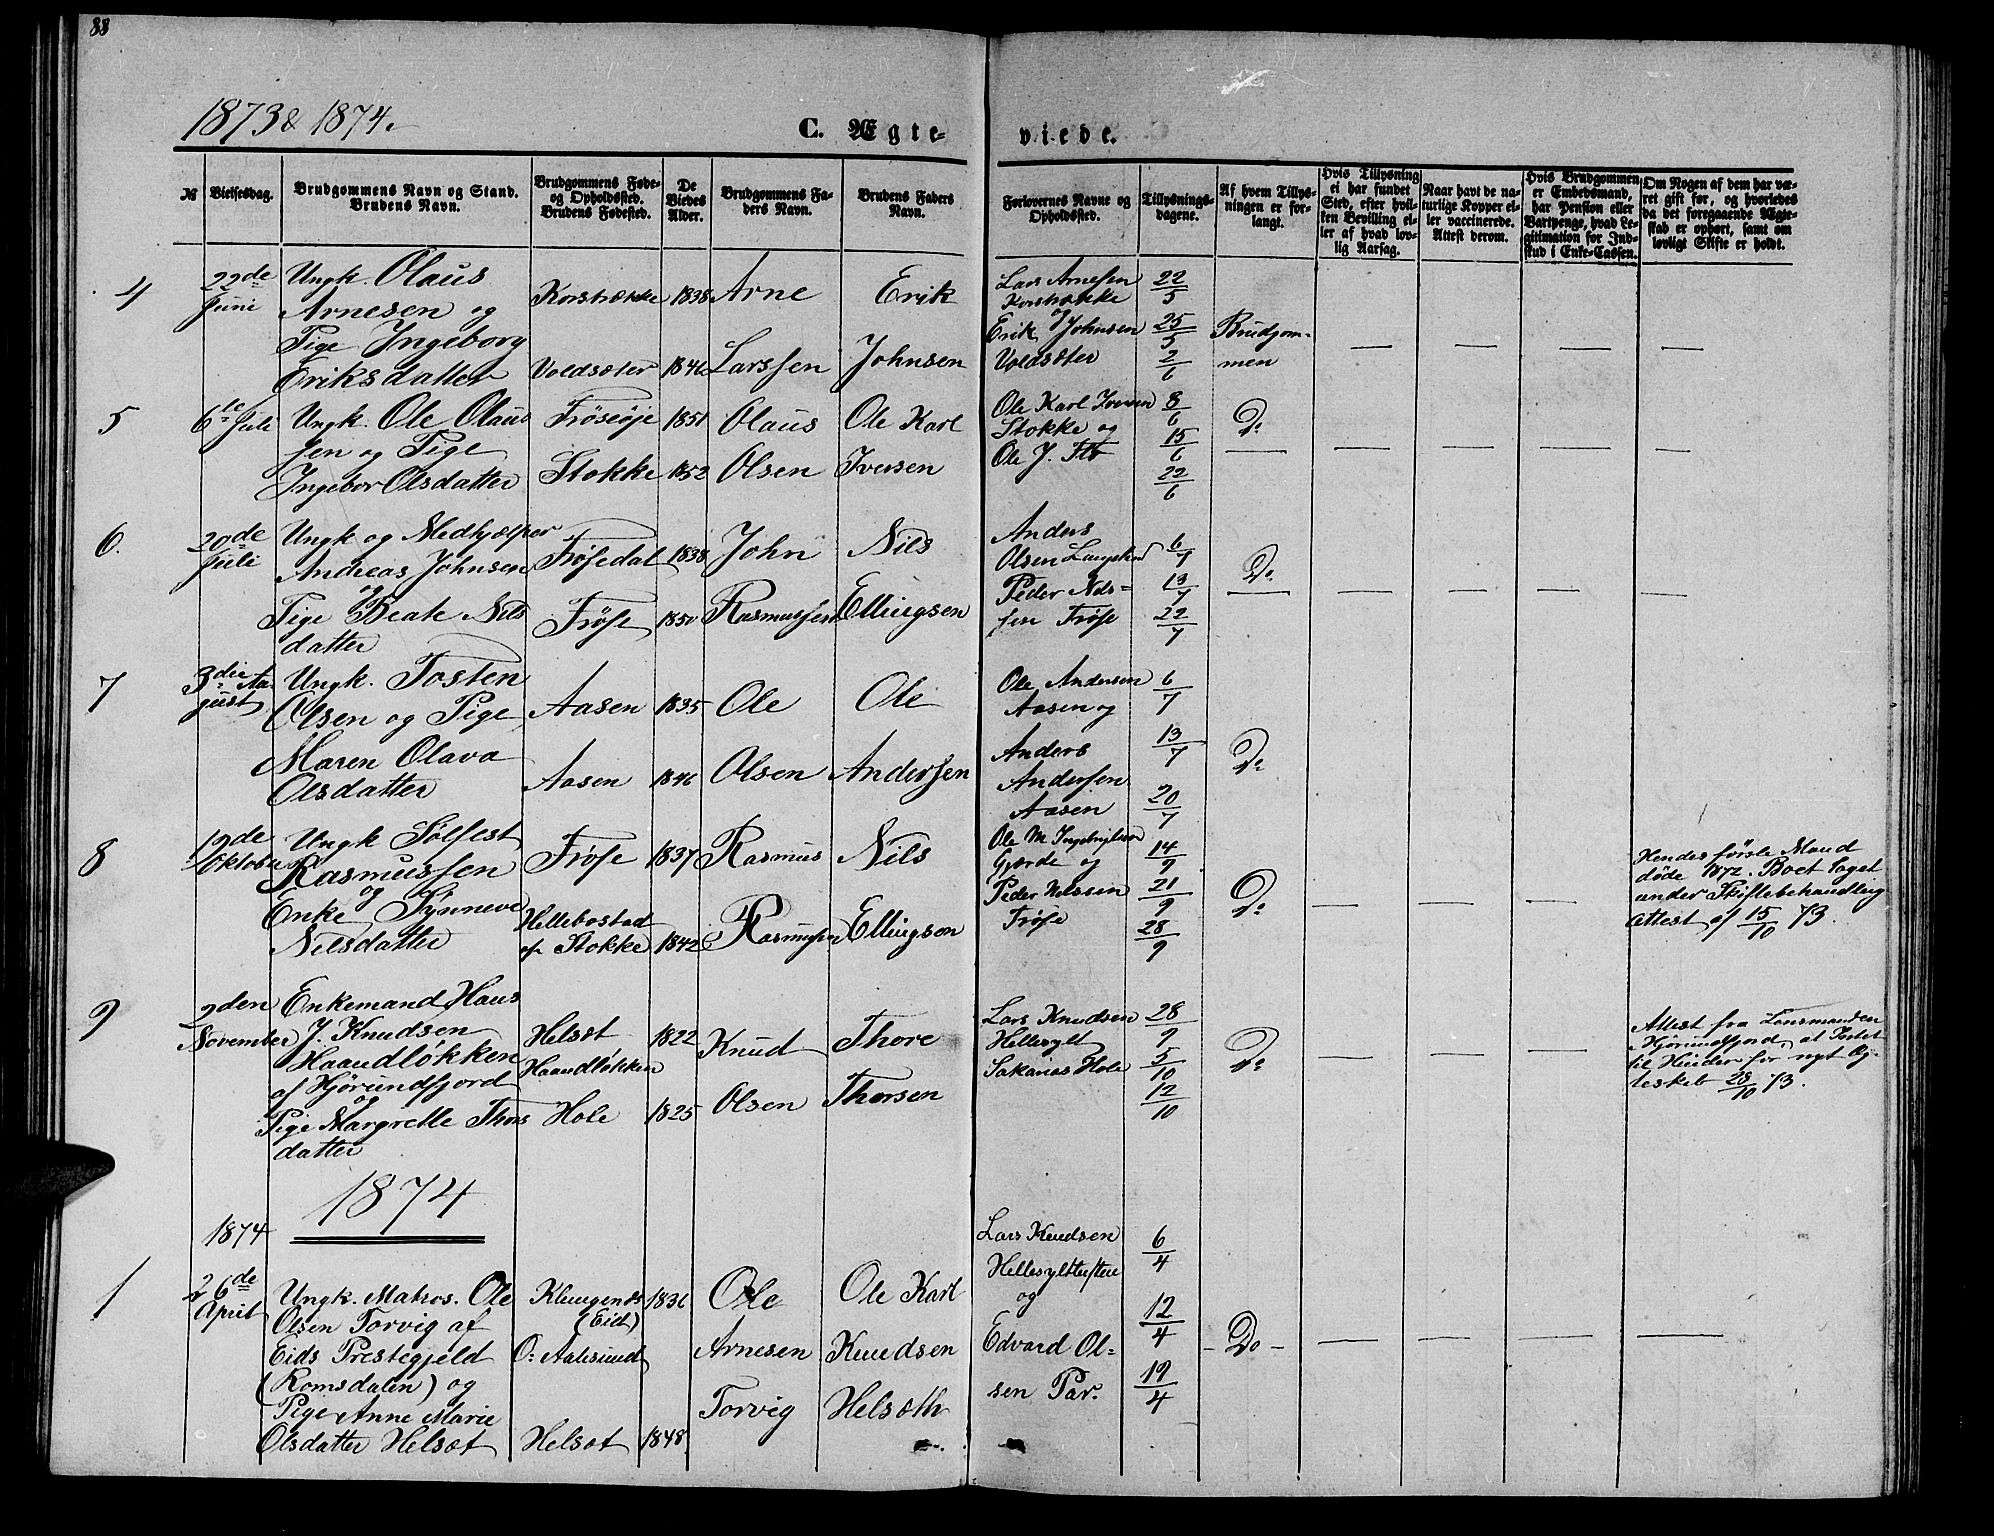 88
1873 & 1874.
C. Ægte-
viede.
№
Vielsesdag.
Brudgommens Navn og Stand.
Brudens Navn.
Brudgommens Føde-
og Opholdssted.
Brudens Fødested.
De
Viedes
Alder.
Brudgommens Fa-
ders Navn.
Brudens Faders
Navn.
Forlovernes Navne og
Opholdssted.
Tillysnings-
dagene.
Af hvem Tillys-
ningen er for-
langt.
Hvis Tillysning
ei har fundet
Sted, efter hvil-
ken Bevilling el-
ler af hvad lov-
lig Aarsag.
Naar havt de na-
turlige Kopper el-
ler vaccinerede.
Attest derom.
Hvis Brudgommen
er Embedsmand,
har Pension eller
Vartpenge, hvad Le-
gitimation for Ind-
skud i Enke-Cassen.
Om Nogen af dem har væ-
ret gift før, og hvorledes
da det foregaaende Ægte-
skab er ophørt, samt om
lovligt Skifte er holdt.
4
22de
Juni
Ungk. Olaus
Arnesen og
Pige Ingeborg
Eriksdatter
Korsbrekke 1838
Voldsæter 1846
Arne
Larssen
Erik
Johnsen
Lars Arnesen
Korsbrekke
og
Erik Johnsen
Voldsæter
22/5
25/5
2/6
Brudgom-
men
5
6te Juli
Ungk. Ole Olaus
sen og Pige
Ingebor Olsdatter
Frøseøje 1851
Stokke 1852
Olaus
Olsen
Ole Karl
Iversen
Ole Karl Iversen
Stokke og
Ole J. Flo
8/6
15/6
22/6
Do
6.
20de
Juli
Ungk og Medhjælper
Andreas Johnsen
og
Pige Beate Nils
datter
Frøsedal 1838
Frøse 1850
John
Rasmussen
Nils
Ellingsen
Anders
Olsen
Peder Nils=
sen Frøse
6/7
13/7
22/7
Do
7
3die Au-
gust
Ungk. Tosten
Olsen og Pige
Maren Olava
Olsdatter
Aasen 1835
Aasen 1846
Ole
Olsen
Ole
Andersen
Ole Andersen
Aasen og
Anders
Andersen
Aasen
6/7
13/7
20/7
Do
8
12de
Oktober
Ungk Sølfest
Rasmussen
og
Enke Synneve
Nilsdatter
Frøse 1837
Hellebostad
af Stokke 1842
Rasmus
Rasmussen
Nils
Ellingsen
Ole M. Ingebrigtsen
Gjærde og
Peder Nilssen
Frøse
14/9
21/9
28/9
Do
Hendes første Mand
døde 1872. Boet taget
under Skiftebehandling
Attest af 15/10 73.
9
2den
November
Enkemand Hans
J. Knudsen
Haandløkken
af Hjørundfjord
og
Pige Margrette Thors
datter
Helsæt 1822
Haandløkken
Hole 1825
Knud
Olsen
Thore
Thorsen
Lars Knudsen
Hellesylt
Sakarias Hole
28/9
5/10
12/10
Do
Attest fra Lensmanden
i Hjørundfjord, at Intet
til Hinder for nyt Æg-
teskab 28/10 73.
1874
1874
1
26de
April
Ungk. Matros. Ole
Olsen Torvig af
Eids Prestegjeld
(Romsdalen) og
Pige Anne Marie
Olsdatter Helsæt
Klungenæs 1836
(Eid)
O: Aalesund
Helsæt 1848.
Ole
Arnesen
Torvig
Ole Karl
Knudsen
Helsæth
Lars Knudsen
Hellesylttuften
og
Edvard Ol=
sen Par.
6/4
12/4
19/4
Do